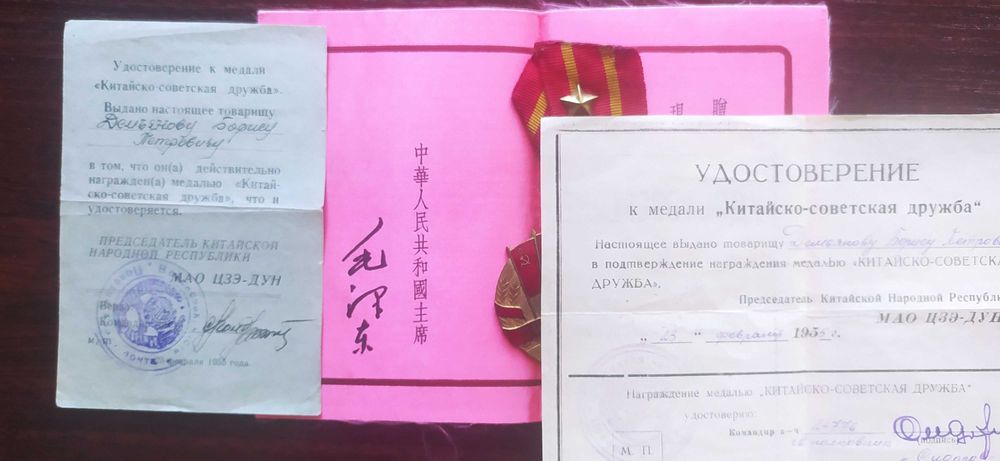 Удостоверение к медали
«Китайско-советская дружба».
Выдано настоящее товарищу
Демьянову Борису
Петровичу
в том, что он(а) действительно
награжден(а) медалью «Китай-
ско-советская дружба», что и
удостоверяется.
ПРЕДСЕДАТЕЛЬ КИТАЙСКОЙ
НАРОДНОЙ РЕСПУБЛИКИ
МАО ЦЗЭ-ДУН
февраля 1955 года
中華人民共和國主席
毛澤東
贈
現
УДОСТОВЕРЕНИЕ
к медали „Китайско-советская дружба“
Настоящее выдано товарищу Демьянову Борису Петров
в подтверждение награждения медалью «КИТАЙСКО-СОВЕТСКА
ДРУЖБА».
Председатель Китайской Народной Республи
МАО ЦЗЭ-ДУН
„ 23 “ февраля 1955 г.
Награждение медалью „КИТАЙСКО-СОВЕТСКАЯ ДРУЖБА“
удостоверяю:
Командир в-ч
полковник
М. П.
(подпись)